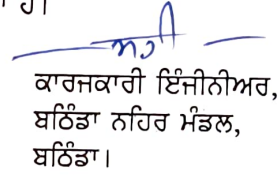 ਸਹੀ
ਕਾਰਜਕਾਰੀ ਇੰਜੀਨੀਅਰ,
ਬਠਿੰਡਾ ਨਹਿਰ ਮੰਡਲ,
ਬਠਿੰਡਾ।